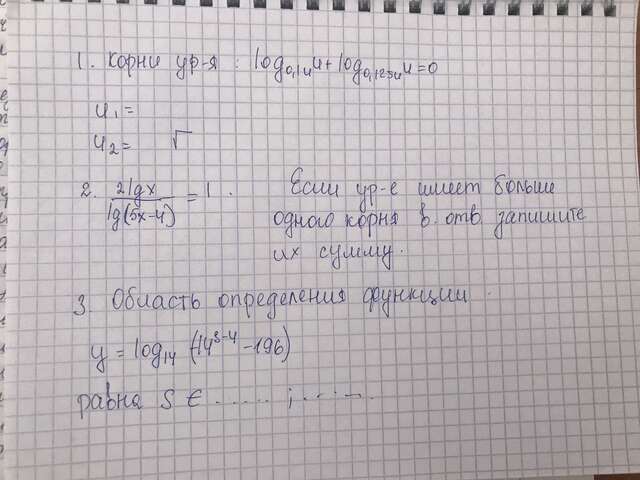 1. Корни ур-я : log₀,₁ᵤ u + log₀,₁₂₅ᵤ u = 0
u₁ =
u₂ = √
2. 2lgx / lg(5x-4) = 1. Если ур-е имеет больше
одного корня в отв. запишите
их сумму.
3. Область определения функции.
y = log₁₄ (14ˢ⁻⁴ - 196)
равна S ∈ ..... ; ......